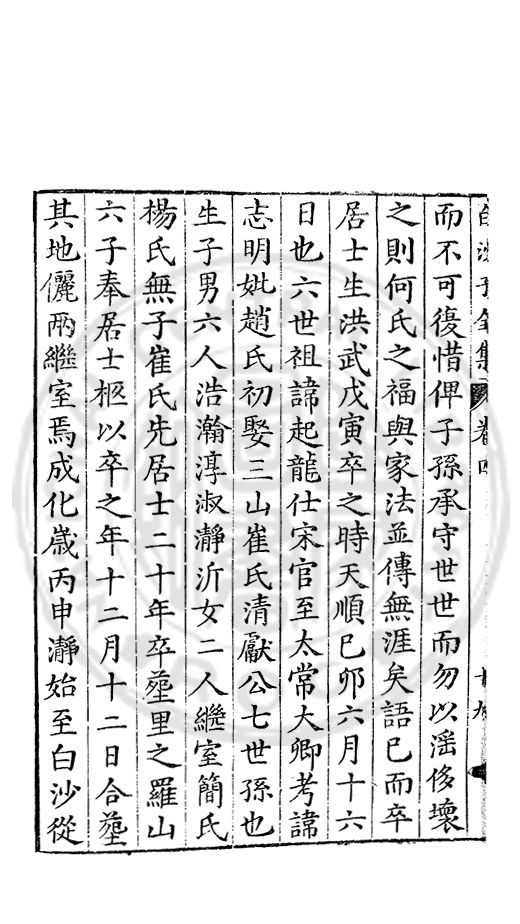 白沙子全集 卷四 十九
而不可復惜俾子孫承守世世而勿以滛侈壞
之則何氏之福與家法並傳無涯矣語已而卒
居士生洪武戊寅卒之時天順已卯六月十六
日也六世祖諱起龍仕宋官至太常大卿考諱
志明妣趙氏初娶三山崔氏清獻公七世孫也
生子男六人浩瀚淳淑瀞沂女二人繼室簡氏
楊氏無子崔氏先居士二十年卒塟里之羅山
六子奉居士柩以卒之年十二月十二日合塟
其地儷兩繼室焉成化歲丙申瀞始至白沙從